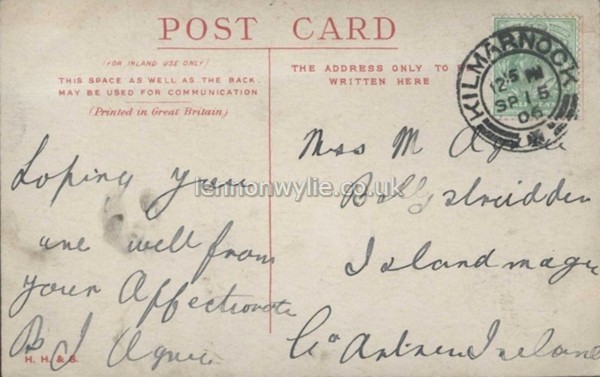 POST CARD
(FOR INLAND USE ONLY)
THIS SPACE AS WELL AS THE BACK
MAY BE USED FOR COMMUNICATION
(Printed in Great Britain)
THE ADDRESS ONLY TO
WRITTEN HERE
KILMARNOCK
12:5 PM
SP 15
06
Loping you
are well from
your Affectionate
B J Agnew
H. H. & S.
Miss M Agnew
Ballystrudden
Islandmagee
Co Antrim Ireland
lennonwylie.co.uk